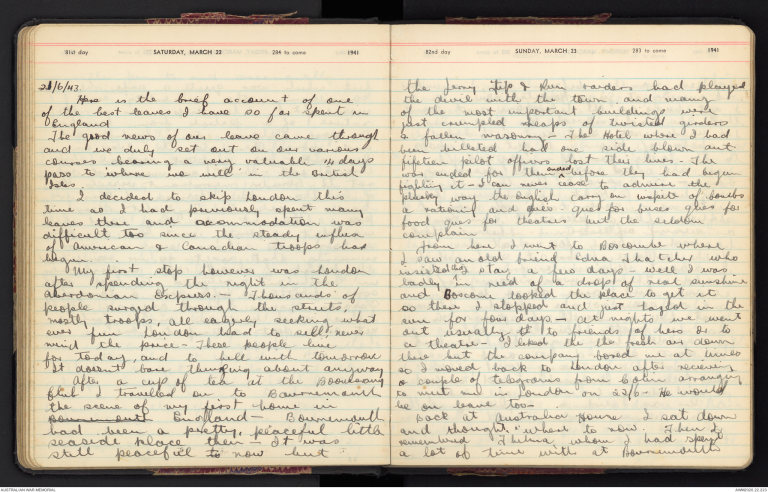 81st day SATURDAY, MARCH 22 284 to come 1941
21/6/43.
Here is the brief account of one
of the best leaves I have so far spent in
England
The good news of our leave came through
and we duly set out on our various
courses bearing a very valuable 14 days
pass to "where we will" in the British
Isles.
I decided to skip London this
time as I had previously spent many
leaves there and accommodation was
difficult too since the steady influx
of American & Canadian troops had
begun.
My first stop however was London
after spending the night in the
Aberdonian Express. - Thousands of
people surged through the streets,
mostly troops all eagerly seeking what
ever fun London had to sell never
mind the price - These people live
for today, and to hell with tomorrow
It doesn't bare thinking about anyway
After a cup of tea at the Boomerang
Club I travelled on to Bournemouth
the scene of my first home in
Bournemouth England - Bournemouth
had been a pretty, peaceful little
seaside place then - It was
still peaceful to now but
82nd day SUNDAY, MARCH 23 283 to come 1941
the Jerry tip & run raiders had played
the devil with the town and many
of the most important buildings were
just crumpled heaps of twisted girders
& fallen masonry - The Hotel where I had
been billeted had one side blown out.
fifteen pilot officers lost their lives - The
war ended for them ended before they had begun
fighting it - I can never cease to admire the
plucky way the english carry on inspite of bombs
& rationing and ques - Ques for buses ques for
food ques for theatres but the seldom
complain
From here I went to Boscombe where
I saw an old friend Edna Thatcher who
insisted that I stay a few days - well I was
badly in need of a drop of real sunshine
and Boscome looked the place to get it
so there I stopped and just lazed in the
sun for four days - At nights we went
out usually to friends of hers or to
a theatre - I liked the the fresh air down
there but the company bored me at times
so I moved back to London after receiving
a couple of telegrams from Colin arranging
to met me in London on 22/6 - He would
be on leave too.
Back at Australia House I sat down
and thought "where to now. Then I
remembered Thelma whom I had spent
a lot of time with at Bournemouth
AUSTRALIAN WAR MEMORIAL